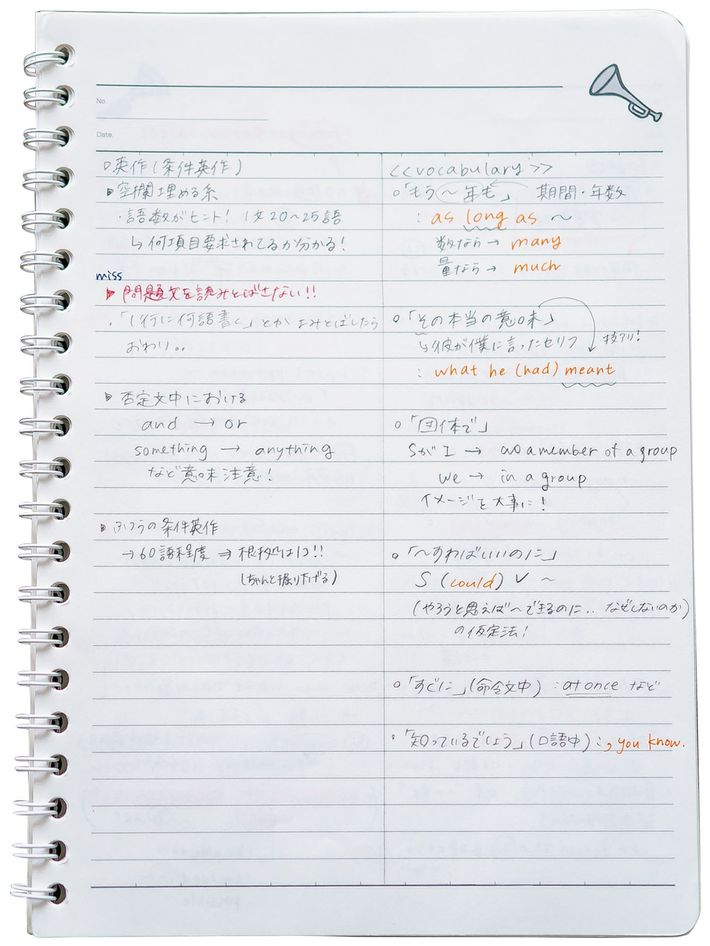 No.
Date.
□英作(条件英作)
▷空欄埋める系
・語数がヒント! 1文20～25語
↳何項目要求されてるか分かる!
miss
▷問題文を読みとばさない!!
・「1行に何語書く」とか よみとばしたら
おわり。。
▷否定文中における
and → or
something → anything
など意味注意!
▷ふつうの条件英作
→60語程度 ⇒ 根拠は1コ!!
(ちゃんと掘り下げる)
<<vocabulary>>
○「もう～年も」 期間・年数
: as long as ～
数なら→ many
量なら→ much
○「その本当の意味」
↳彼が僕に言ったセリフ 技アリ!
: what he (had) meant
○「団体で」
Sが I → as a member of a group
we → in a group
イメージを大事に!
○「～すればいいのに」
S (could) V ～
(やろうと思えば～できるのに.. なぜしないのか)
の仮定法!
○「すぐに」(命令文中) : at once など
○「知っているでしょう」(口語中) : , you know.